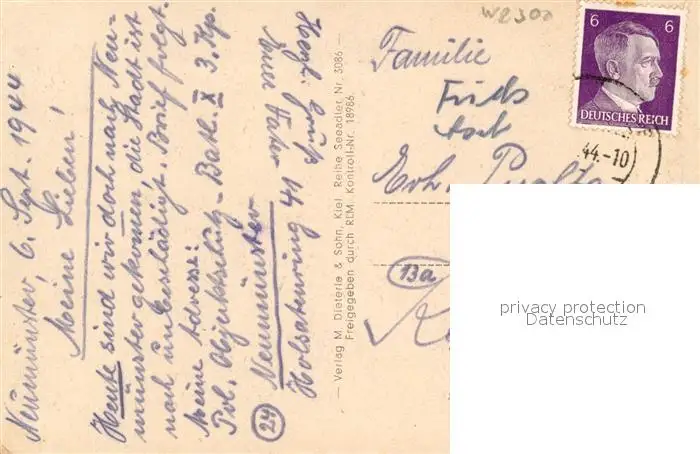 Neumünster, 6. Sept. 1944
Meine Lieben!
Heute sind wir doch nach Neu-
münster gekommen, die Stadt ist
noch unbeschädigt. Brief folgt.
Meine Adresse:
Pol. Objektschutz-Batl. X 3. Kp.
24 Neumünster
Holsatenring 41
Euer Vater
— Verlag M. Dieterle & Sohn, Kiel Reihe Seeadler, Nr. 3086 —
Freigegeben durch RLM. Kontroll-Nr. 18986.
W2300
Familie
Erh.
13a
6 6
DEUTSCHES REICH
44.-10
privacy protection
Datenschutz